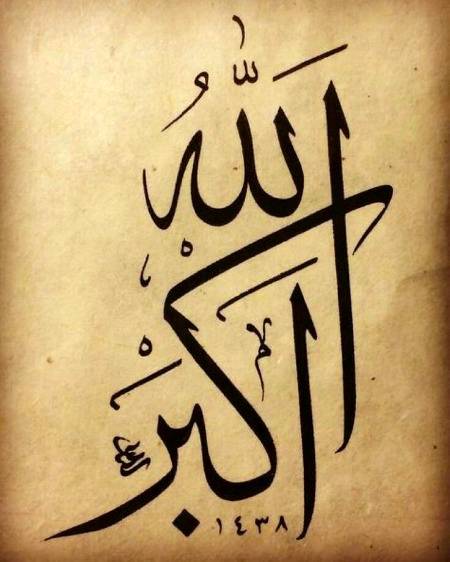 اللّٰهُ
أَكْبَرُ
١٤٣٨